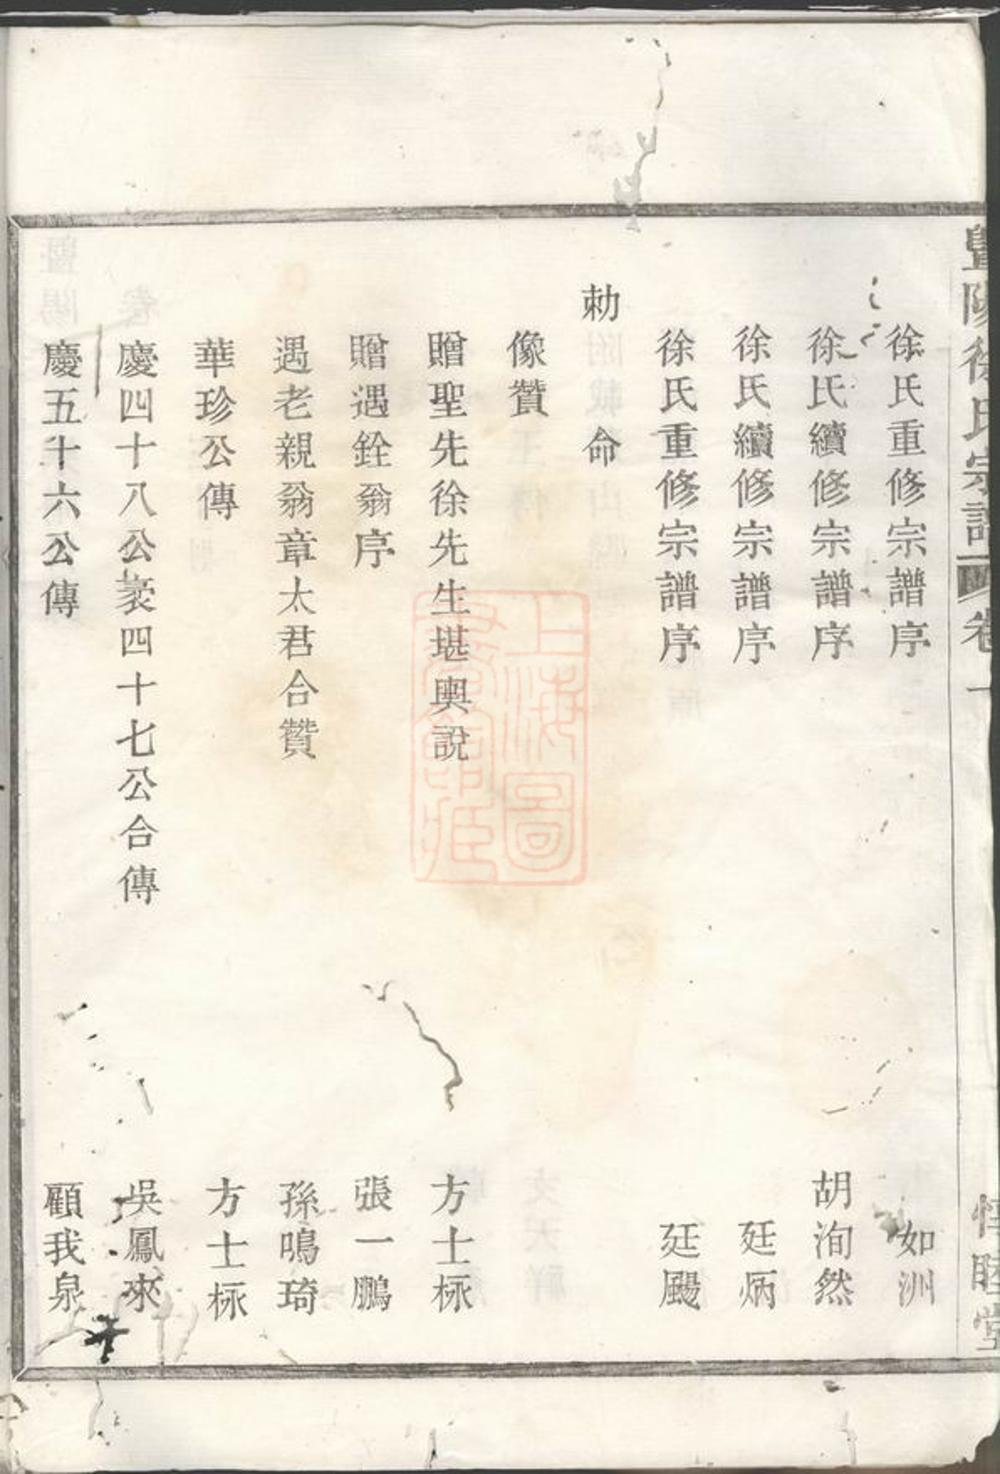 暨陽徐氏宗譜 卷 惇睦堂
徐氏重修宗譜序 如洲
徐氏續修宗譜序 胡洵然
徐氏續修宗譜序 廷炳
徐氏重修宗譜序 廷颺
勅命
像贊
贈聖先徐先生堪輿說 方士
贈遇銓翁序 張一鵬
遇老親翁章太君合贊 孫鳴琦
華珍公傳 方士
慶四十八公袠四十七公合傳 吳鳳來
慶五十六公傳 顧我泉
上海圖書館藏